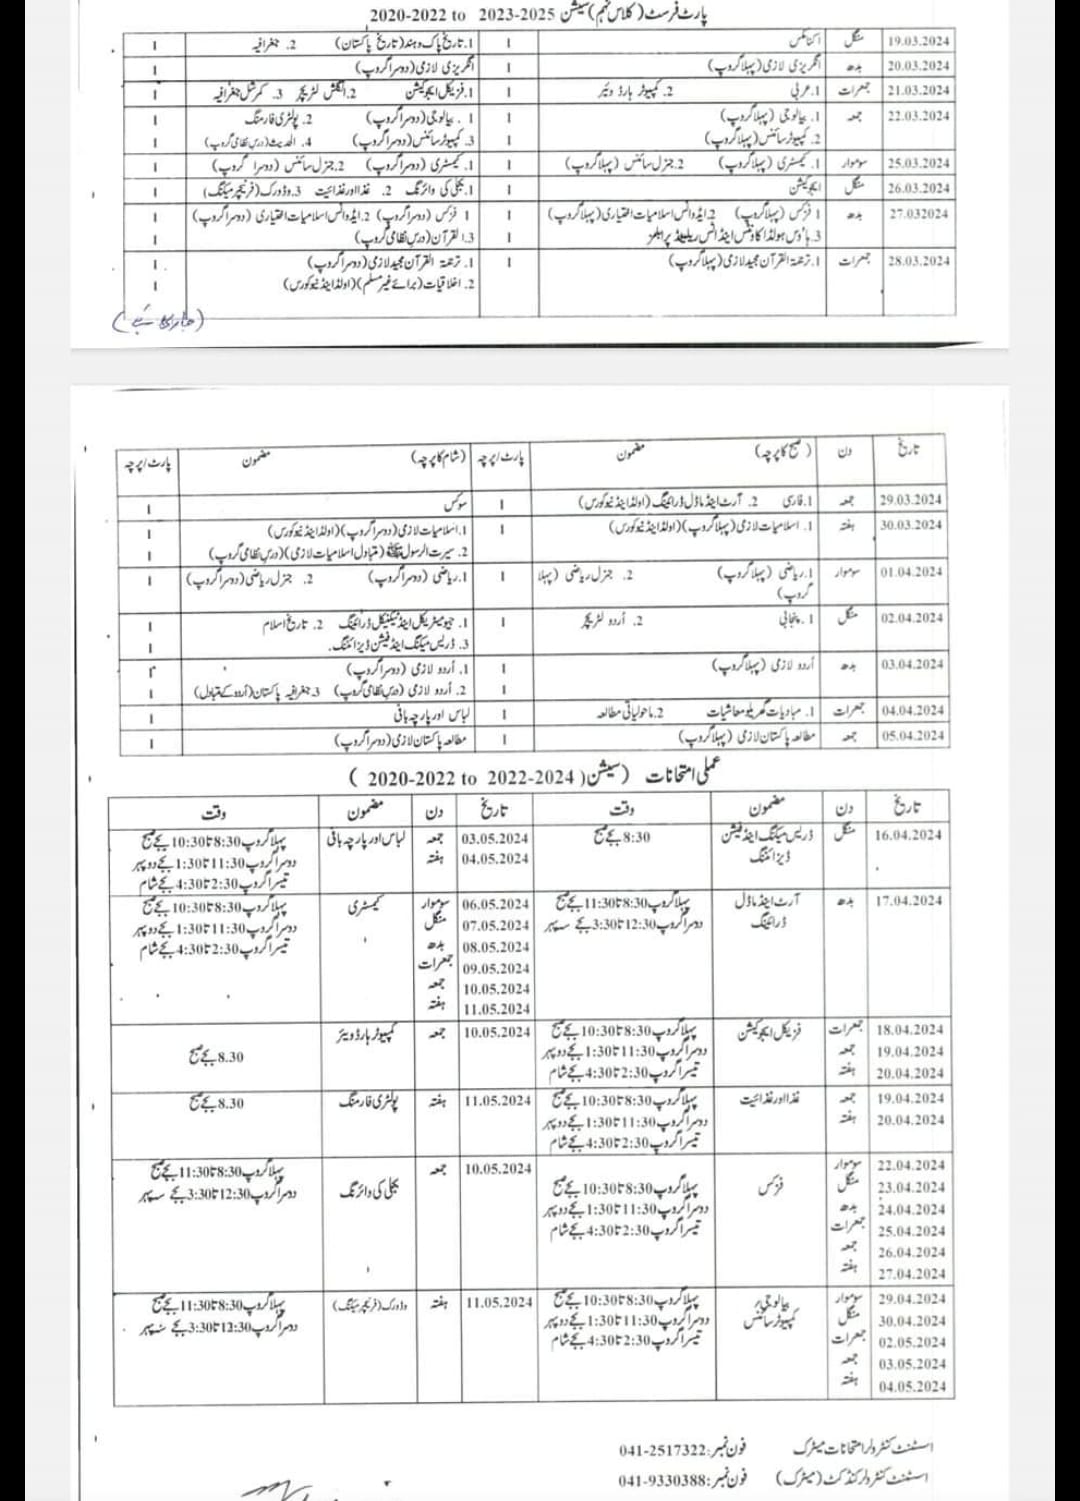 پارٹ فرسٹ (کلاس نہم) سیشن 2020-2022 to 2023-2025
19.03.2024 منگل اکنامکس 1 1. تاریخ پاک و ہند (تاریخ پاکستان) 2. جغرافیہ 1
20.03.2024 بدھ انگریزی لازمی (پہلا گروپ) 1 انگریزی لازمی (دوسرا گروپ) 1
21.03.2024 جمعرات 1. عربی 2. کمپیوٹر ہارڈ ویئر 1 1. فزیکل ایجوکیشن 2. انگلش لٹریچر 3. کمرشل جغرافیہ 1
22.03.2024 جمعہ 1. بیالوجی (پہلا گروپ) 1 1. بیالوجی (دوسرا گروپ) 2. پولٹری فارمنگ 1
2. کمپیوٹر سائنس (پہلا گروپ) 1 3. کمپیوٹر سائنس (دوسرا گروپ) 4. الحدیث (درس نظامی گروپ) 1
25.03.2024 سوموار 1. کیمسٹری (پہلا گروپ) 2. جنرل سائنس (پہلا گروپ) 1 1. کیمسٹری (دوسرا گروپ) 2. جنرل سائنس (دوسرا گروپ) 1
26.03.2024 منگل ایجوکیشن 1 1. بجلی کی وائرنگ 2. غذا اور غذائیت 3. وڈ ورک (فرنیچر میکنگ) 1
27.032024 بدھ 1 فزکس (پہلا گروپ) 2. ایڈوانس اسلامیات اختیاری (پہلا گروپ) 1 1 فزکس (دوسرا گروپ) 2. ایڈوانس اسلامیات اختیاری (دوسرا گروپ) 1
3. ہاؤس ہولڈ اکاؤنٹس اینڈ اٹس ریلیٹڈ پرابلمز 1 3. القرآن (درس نظامی گروپ) 1
28.03.2024 جمعرات 1. ترجمۃ القرآن مجید لازمی (پہلا گروپ) 1 1. ترجمۃ القرآن مجید لازمی (دوسرا گروپ) 1
2. اخلاقیات (برائے غیر مسلم) (اولڈ اینڈ نیو کورس) 1
(جاری ہے)
تاریخ دن (صبح کا پرچہ) مضمون پارٹ/پرچہ (شام کا پرچہ) مضمون پارٹ/پرچہ
29.03.2024 جمعہ 1. فارسی 2. آرٹ اینڈ ماڈل ڈرائنگ (اولڈ اینڈ نیو کورس) 1 سوکس 1
30.03.2024 ہفتہ 1. اسلامیات لازمی (پہلا گروپ) (اولڈ اینڈ نیو کورس) 1 1. اسلامیات لازمی (دوسرا گروپ) (اولڈ اینڈ نیو کورس) 1
2. سیرت الرسول ﷺ (متبادل اسلامیات لازمی) (درس نظامی گروپ) 1
01.04.2024 سوموار 1. ریاضی (پہلا گروپ) 2. جنرل ریاضی (پہلا 1 1. ریاضی (دوسرا گروپ) 2. جنرل ریاضی (دوسرا گروپ) 1
گروپ)
02.04.2024 منگل 1. پنجابی 2. اُردو لٹریچر 1 1. جیومیٹریکل اینڈ ٹیکنیکل ڈرائنگ 2. تاریخ اسلام 1
3. ڈریس میکنگ اینڈ فیشن ڈیزائننگ. 1
03.04.2024 بدھ اُردو لازمی (پہلا گروپ) 1 1. اُردو لازمی (دوسرا گروپ)
1 2. اُردو لازمی (درس نظامی گروپ) 3. جغرافیہ پاکستان (اُردو کے متبادل) 1
04.04.2024 جمعرات 1. مبادیات گھریلو معاشیات 2. ماحولیاتی مطالعہ 1 لباس اور پارچہ بافی 1
05.04.2024 جمعہ مطالعہ پاکستان لازمی (پہلا گروپ) 1 مطالعہ پاکستان لازمی (دوسرا گروپ) 1
عملی امتحانات (سیشن 2020-2022 to 2022-2024)
تاریخ دن مضمون وقت تاریخ دن مضمون وقت
16.04.2024 منگل ڈریس میکنگ اینڈ فیشن 8:30 بجے صبح 03.05.2024 جمعہ لباس اور پارچہ بافی پہلا گروپ 8:30 تا 10:30 بجے صبح
ڈیزائننگ 04.05.2024 ہفتہ دوسرا گروپ 11:30 تا 1:30 بجے دوپہر
تیسرا گروپ 2:30 تا 4:30 بجے شام
17.04.2024 بدھ آرٹ اینڈ ماڈل پہلا گروپ 8:30 تا 11:30 بجے صبح 06.05.2024 سوموار کیمسٹری پہلا گروپ 8:30 تا 10:30 بجے صبح
ڈرائنگ دوسرا گروپ 12:30 تا 3:30 بجے سہ پہر 07.05.2024 منگل دوسرا گروپ 11:30 تا 1:30 بجے دوپہر
08.05.2024 بدھ تیسرا گروپ 2:30 تا 4:30 بجے شام
09.05.2024 جمعرات
10.05.2024 جمعہ
11.05.2024 ہفتہ
18.04.2024 جمعرات فزیکل ایجوکیشن پہلا گروپ 8:30 تا 10:30 بجے صبح 10.05.2024 جمعہ کمپیوٹر ہارڈ ویئر
19.04.2024 جمعہ دوسرا گروپ 11:30 تا 1:30 بجے دوپہر 8.30 بجے صبح
20.04.2024 ہفتہ تیسرا گروپ 2:30 تا 4:30 بجے شام
19.04.2024 جمعہ غذا اور غذائیت پہلا گروپ 8:30 تا 10:30 بجے صبح 11.05.2024 ہفتہ پولٹری فارمنگ 8.30 بجے صبح
20.04.2024 ہفتہ دوسرا گروپ 11:30 تا 1:30 بجے دوپہر
تیسرا گروپ 2:30 تا 4:30 بجے شام
22.04.2024 سوموار 10.05.2024 جمعہ پہلا گروپ 8:30 تا 11:30 بجے صبح
23.04.2024 منگل فزکس پہلا گروپ 8:30 تا 10:30 بجے صبح بجلی کی وائرنگ دوسرا گروپ 12:30 تا 3:30 بجے سہ پہر
24.04.2024 بدھ دوسرا گروپ 11:30 تا 1:30 بجے دوپہر
25.04.2024 جمعرات تیسرا گروپ 2:30 تا 4:30 بجے شام
26.04.2024 جمعہ
27.04.2024 ہفتہ
29.04.2024 سوموار بیالوجی/ پہلا گروپ 8:30 تا 10:30 بجے صبح 11.05.2024 ہفتہ وڈ ورک (فرنیچر میکنگ) پہلا گروپ 8:30 تا 11:30 بجے صبح
30.04.2024 منگل کمپیوٹر سائنس دوسرا گروپ 11:30 تا 1:30 بجے دوپہر دوسرا گروپ 12:30 تا 3:30 بجے سہ پہر
02.05.2024 جمعرات تیسرا گروپ 2:30 تا 4:30 بجے شام
03.05.2024 جمعہ
04.05.2024 ہفتہ
اسسٹنٹ کنٹرولر امتحانات میٹرک فون نمبر: 041-2517322
اسسٹنٹ کنٹرولر کنڈکٹ (میٹرک) فون نمبر: 041-9330388